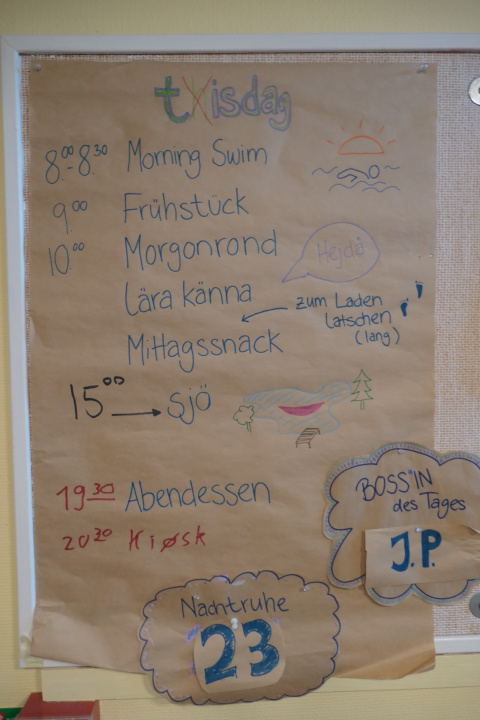 tXisdag
8.00-8.30 Morning Swim
9.00 Frühstück
10.00 Morgonrond
Hejdå
Lära känna
zum Laden
latschen
(lang)
Mittagssnack
15.00 → sjö
19.30 Abendessen
20.30 Kiøsk
BOSS*IN
des Tages
J.P.
Nachtruhe
23